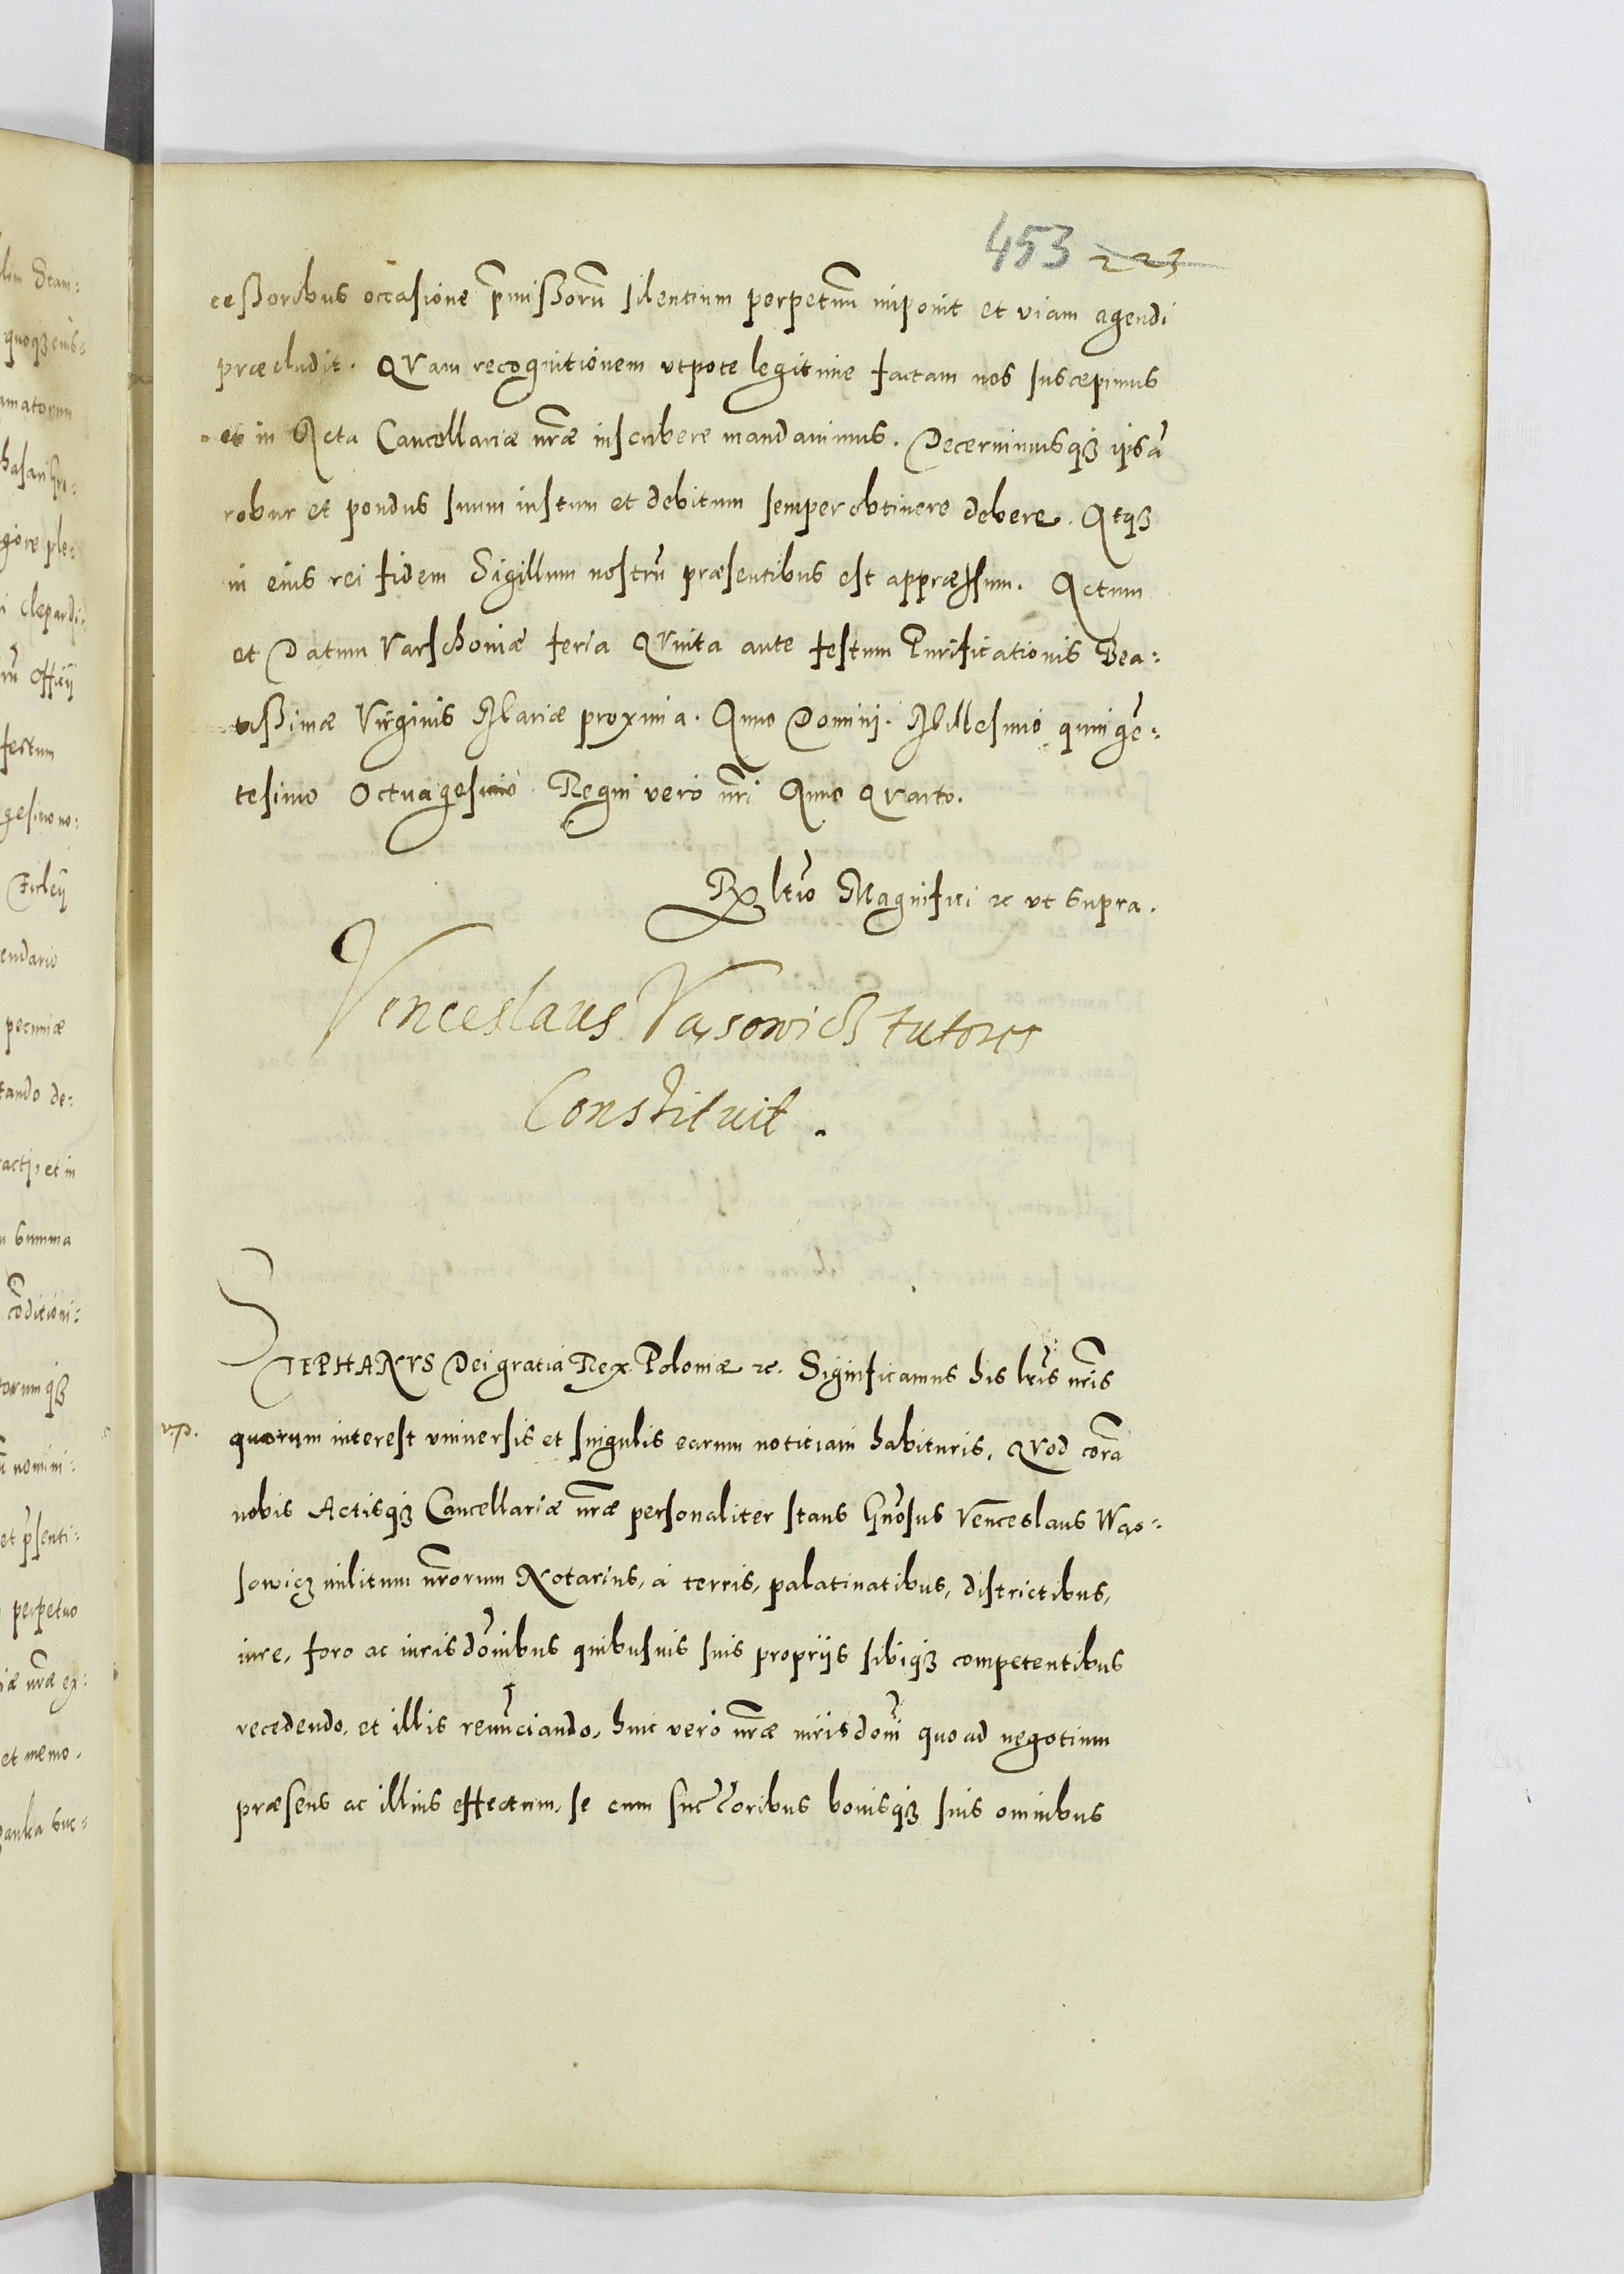 453 223
ceßoribus occasione p̃mißorũ silentium perpetuũ imponit et viam agendi
præcludit. QVam recognitionem vtpote legitime factam nos suscepimus
et in Acta Cancellariæ nr̃æ inscribere mandauimus. Decernimusqȝ ipsã
robur et pondus suum iustum et debitum semper obtinere debere. Atqȝ
in eius rei fidem Sigillum nostrũ præsentibus est appræssum. Actum
et Datum Varschoniæ feria QVinta ante festum Purificationis Bea:
tißimæ Virginis Mariæ proxima. Anno Domini. Millesimo quingẽ:
tesimo Octuagesimo Regni vero nr̃i Anno QVarto.
Rx ltĩo Magnifici ꝛc vt supra.
Venceslaus Vasowicz tutores
Constituit.
STEPHANVS Dei gratia Rex Poloniæ ꝛc. Significamus his lr̃is nr̃is
v.p.
quorum interest vniuersis et singulis earum notitiam habituris, QVod corã
nobis Actisqȝ Cancellariæ nr̃æ personaliter stans Gñosus Venceslaus Was:
sowicz militum nr̃orum Notarius, à terris, palatinatibus, districtibus,
iure, foro ac iurisdõnibus quibusuis suis proprijs sibiqȝ competentibus
recedendo, et illis renũciando, huic vero nr̃æ iurisdoñi quo ad negotium
præsens ac illius effectum, se cum succ̃oribus bonisqȝ suis omnibus
lim Stani:
quoqȝ eius:
gore ple:
i Clepardi:
rũ Officij
gesimo no:
Firleij
endario
pecuniæ
tando de:
acti, et in
summa
cõditioni:
torumqȝ
nomini:
et p̃senti:
perpetuo
iæ nr̃æ ex:
et memo:
suc: